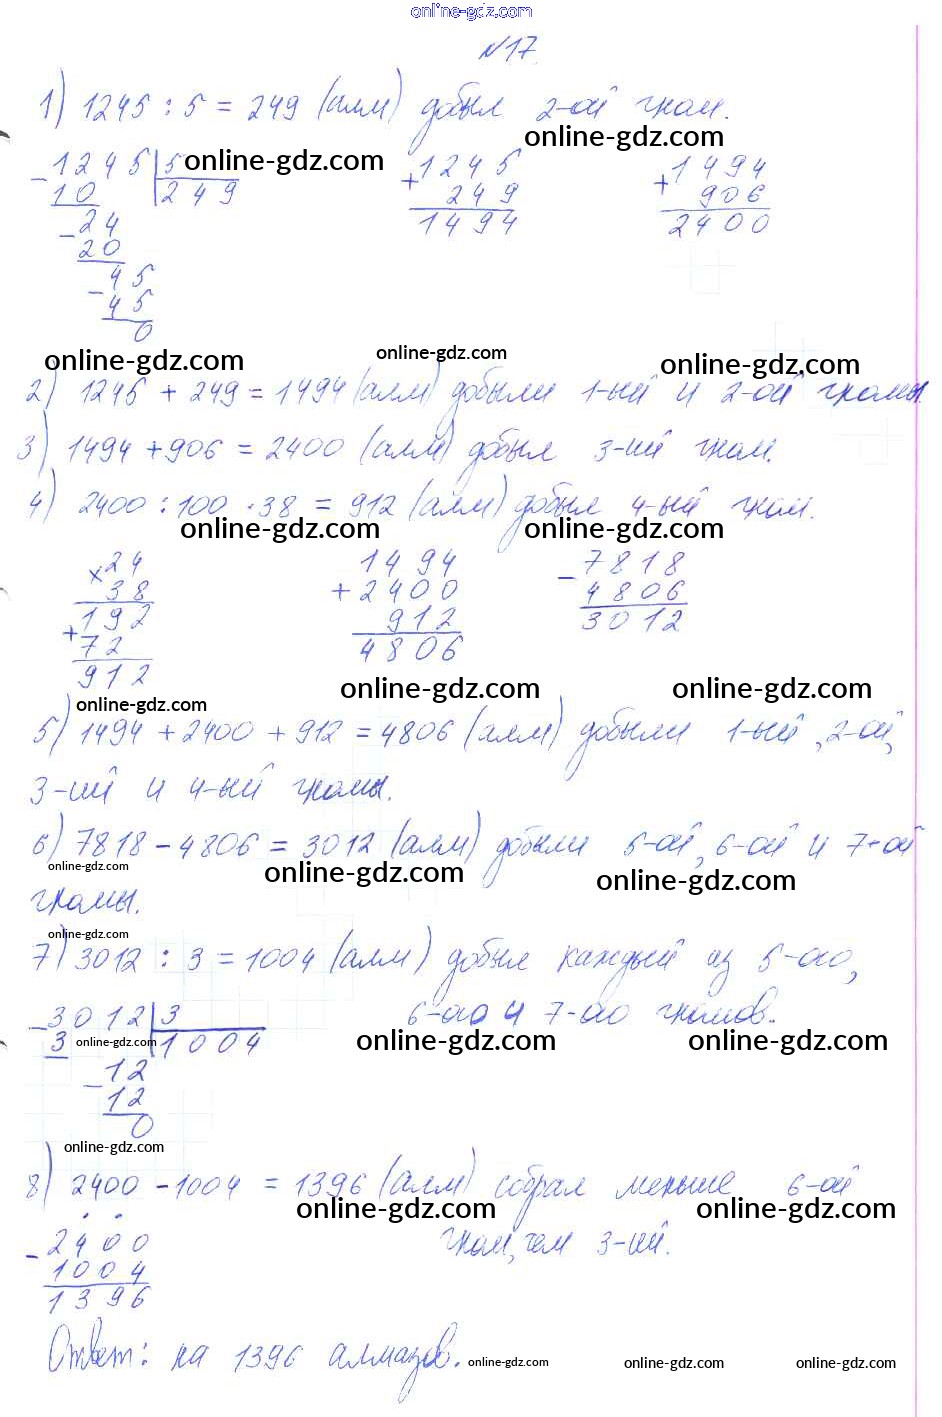 online-gdz.com
№17.
1) 1245 : 5 = 249 (алм) добыл 2-ой гном.
online-gdz.com
online-gdz.com
- 1245 | 5
10 | 249
- 24
20
- 45
45
0
+ 1245
249
1494
+ 1494
906
2400
online-gdz.com
online-gdz.com
online-gdz.com
2) 1245 + 249 = 1494 (алм) добыли 1-ый и 2-ой гномы.
3) 1494 + 906 = 2400 (алм) добыл 3-ий гном.
4) 2400 : 100 · 38 = 912 (алм) добыл 4-ый гном.
online-gdz.com
online-gdz.com
× 24
38
192
+ 72
912
1494
+ 2400
912
4806
- 7818
4806
3012
online-gdz.com
online-gdz.com
online-gdz.com
5) 1494 + 2400 + 912 = 4806 (алм) добыли 1-ый, 2-ой,
3-ий и 4-ый гномы.
6) 7818 - 4806 = 3012 (алм) добыли 5-ой, 6-ой и 7-ой
online-gdz.com
online-gdz.com
online-gdz.com
гномы.
online-gdz.com
7) 3012 : 3 = 1004 (алм) добыл каждый из 5-ого,
6-ого и 7-ого гномов.
- 3012 | 3
3 | 1004
- 12
12
0
online-gdz.com
online-gdz.com
online-gdz.com
online-gdz.com
8) 2400 - 1004 = 1396 (алм) собрал меньше 6-ой
online-gdz.com
online-gdz.com
гном, чем 3-ий.
- 2400
1004
1396
Ответ: на 1396 алмазов.
online-gdz.com
online-gdz.com
online-gdz.com